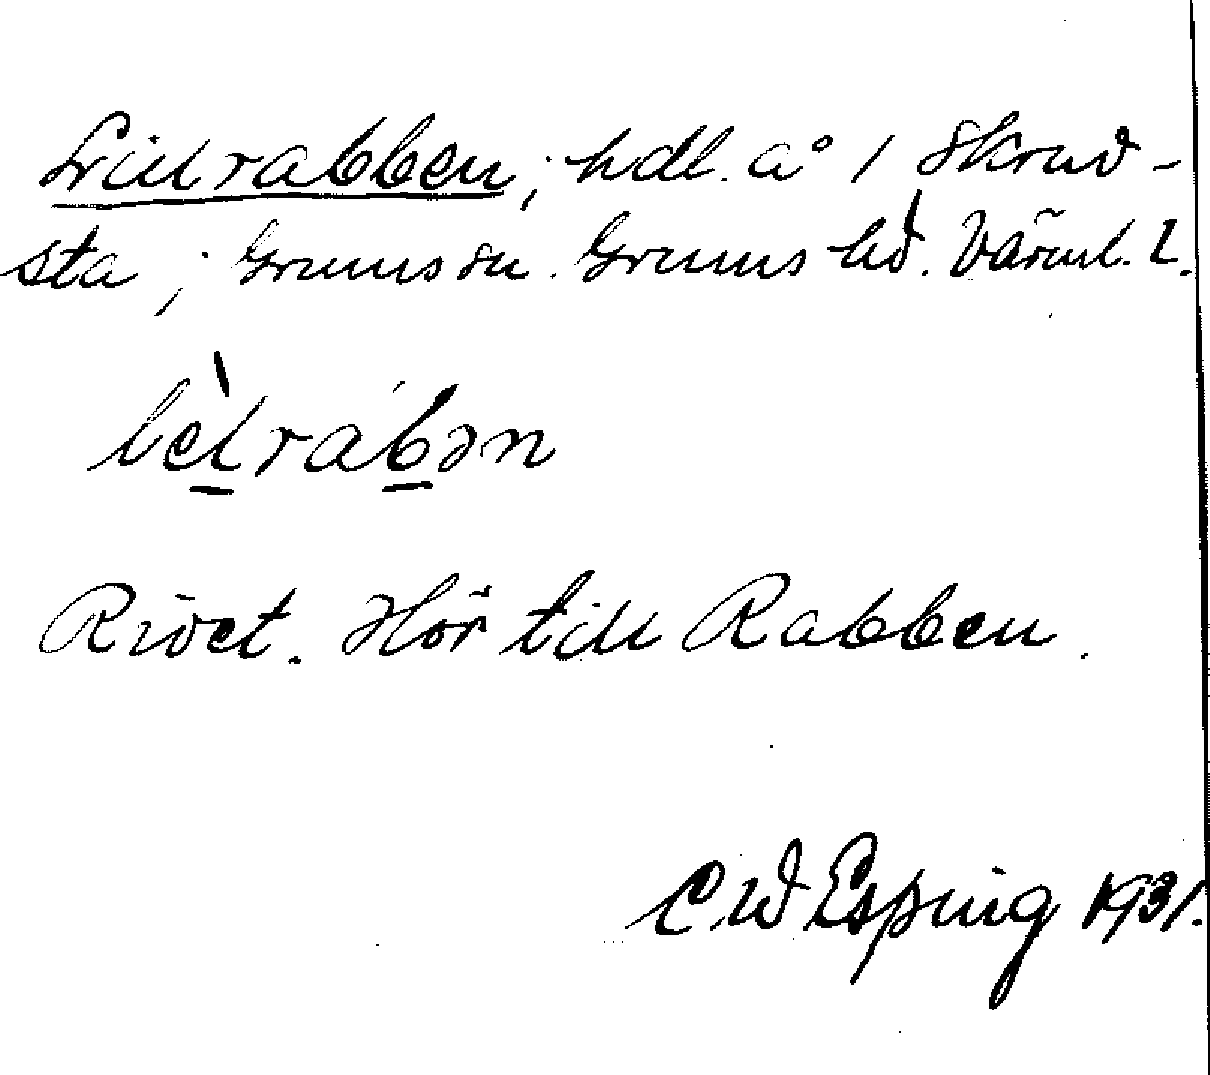 Lillrabben; hdl. å 1 Skruv-
sta; Grums sn. Grums hd. Värml. l.
lèlrabən
Rivet. Hör till Rabben.
C W Esping 1931.